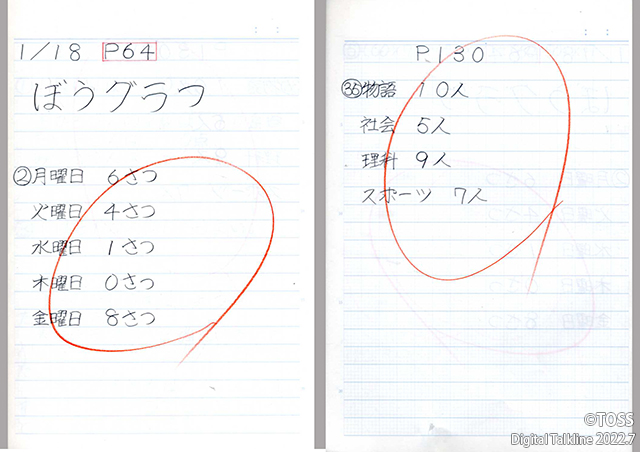 1/18 P64
ぼうグラフ
②月曜日 6さつ
火曜日 4さつ
水曜日 1さつ
木曜日 0さつ
金曜日 8さつ
P.130
㉟物語 10人
社会 5人
理科 9人
スポーツ 7人
©TOSS
Digital Talkline 2022.7